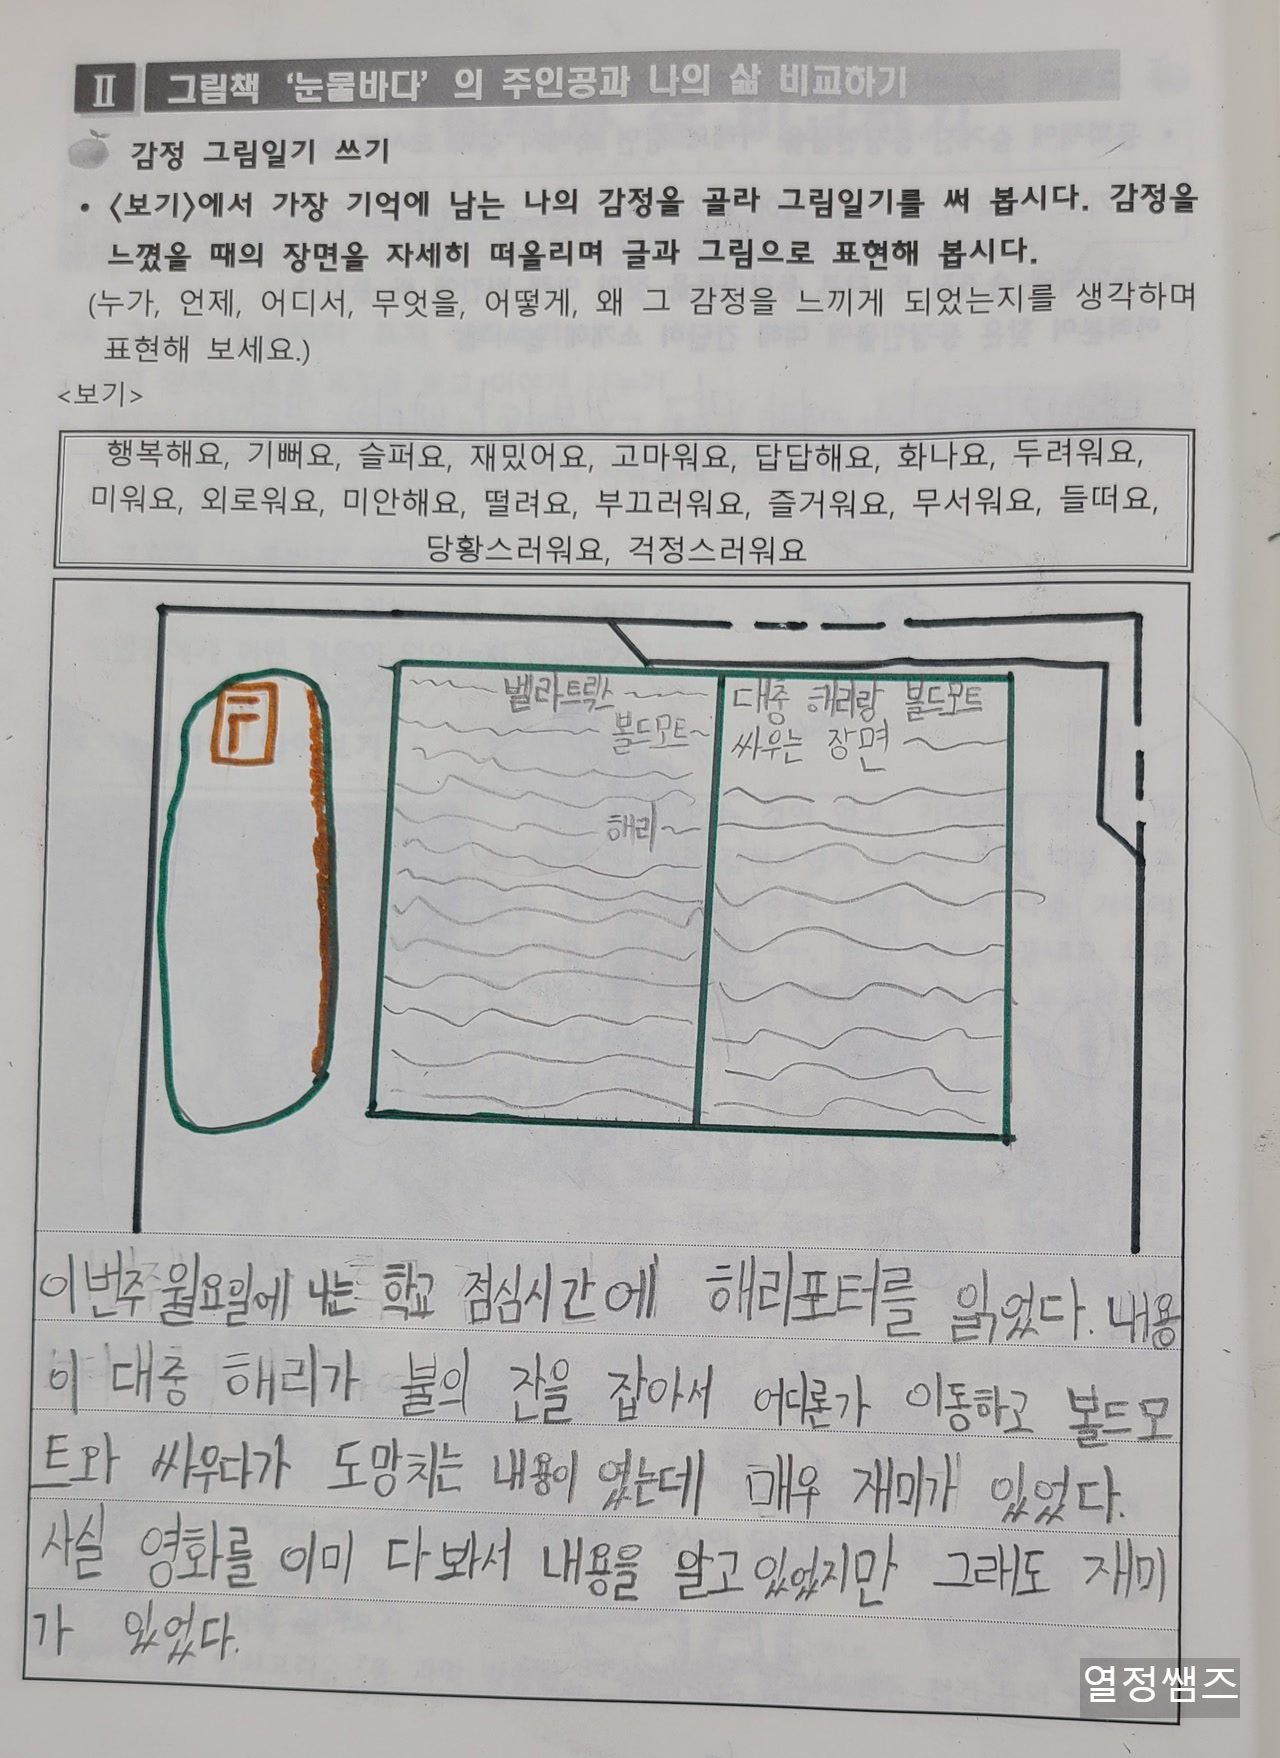 Ⅱ 그림책 '눈물바다' 의 주인공과 나의 삶 비교하기
감정 그림일기 쓰기
• <보기>에서 가장 기억에 남는 나의 감정을 골라 그림일기를 써 봅시다. 감정을
느꼈을 때의 장면을 자세히 떠올리며 글과 그림으로 표현해 봅시다.
(누가, 언제, 어디서, 무엇을, 어떻게, 왜 그 감정을 느끼게 되었는지를 생각하며
표현해 보세요.)
<보기>
행복해요, 기뻐요, 슬퍼요, 재밌어요, 고마워요, 답답해요, 화나요, 두려워요,
미워요, 외로워요, 미안해요, 떨려요, 부끄러워요, 즐거워요, 무서워요, 들떠요,
당황스러워요, 걱정스러워요
벨라트릭스
볼드모트
해리
대충 해리랑 볼드모트
싸우는 장면
이번주 월요일에 나는 학교 점심시간에 해리포터를 읽었다. 내용
이 대충 해리가 불의 잔을 잡아서 어디론가 이동하고 볼드모
트와 싸우다가 도망치는 내용이 였는데 매우 재미가 있었다.
사실 영화를 이미 다 봐서 내용을 알고 있었지만 그래도 재미
가 있었다.
열정쌤즈